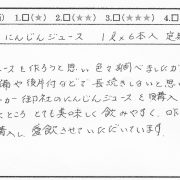 1.□(★) 2.□(★★) 3.□(★★★) 4.
にんじんジュース 1ℓ×6本入 定
ースを作ろうと思い色々調べましたが
備や後片付などで長続きしないと思い
カー御社のにんじんジュースを購入
ところとても美味しく飲みやすく、
購入し愛飲させていただいています